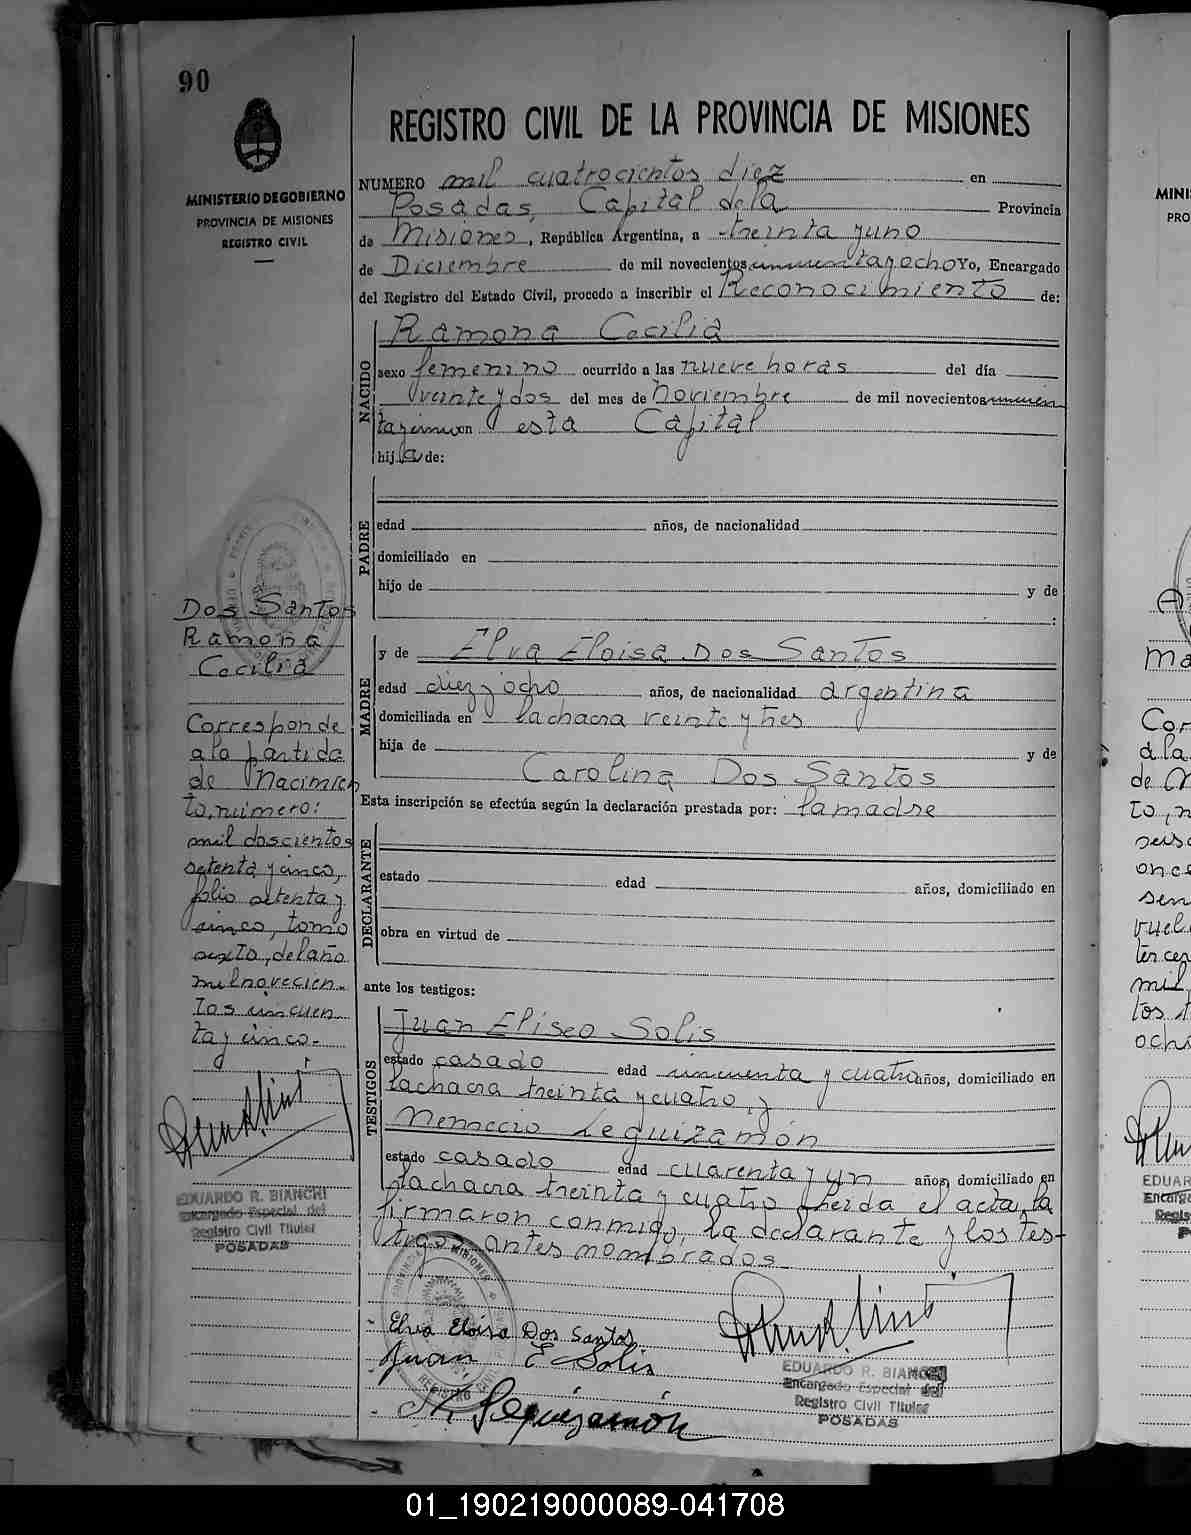 90
MINISTERIO DE GOBIERNO
PROVINCIA DE MISIONES
REGISTRO CIVIL
Dos Santos
Ramona
Cecilia
Corresponde
a la partida
de Nacimien
to, número:
mil doscientos
setenta y cinco,
folio setenta y
cinco, tomo
sexto, del año
mil novecien-
tos cincuen
ta y cinco.-
EDUARDO R. BIANCHI
Encargado Especial del
Registro Civil Titular
POSADAS
REGISTRO CIVIL DE LA PROVINCIA DE MISIONES
NUMERO mil cuatrocientos diez en
Posadas, Capital de la Provincia
de Misiones, República Argentina, a treinta y uno
de Diciembre de mil novecientos cincuenta y ocho Yo, Encargado
del Registro del Estado Civil, procedo a inscribir el Reconocimiento de:
NACIDO
Ramona Cecilia
sexo femenino ocurrido a las nueve horas del día
veinte y dos del mes de Noviembre de mil novecientos cincuen
ta y cinco en esta Capital
hija de:
PADRE
edad años, de nacionalidad
domiciliado en
hijo de y de
MADRE
y de Elva Eloisa Dos Santos
edad diez y ocho años, de nacionalidad argentina
domiciliada en la chacra veinte y tres
hija de y de
Carolina Dos Santos
Esta inscripción se efectúa según la declaración prestada por: la madre
DECLARANTE
estado edad años, domiciliado en
obra en virtud de
ante los testigos:
TESTIGOS
Juan Eliseo Solis
estado casado edad cincuenta y cuatro años, domiciliado en
la chacra treinta y cuatro, y
Nemecio Leguizamón
estado casado edad cuarenta y un años, domiciliado en
la chacra treinta y cuatro. Leida el acta, la
firmaron conmigo, la declarante y los tes-
tigos antes nombrados.-
Elva Eloisa Dos Santos
Juan E Solis
N. Leguizamón
EDUARDO R. BIANCHI
Encargado Especial del
Registro Civil Titular
POSADAS
01_190219000089-041708